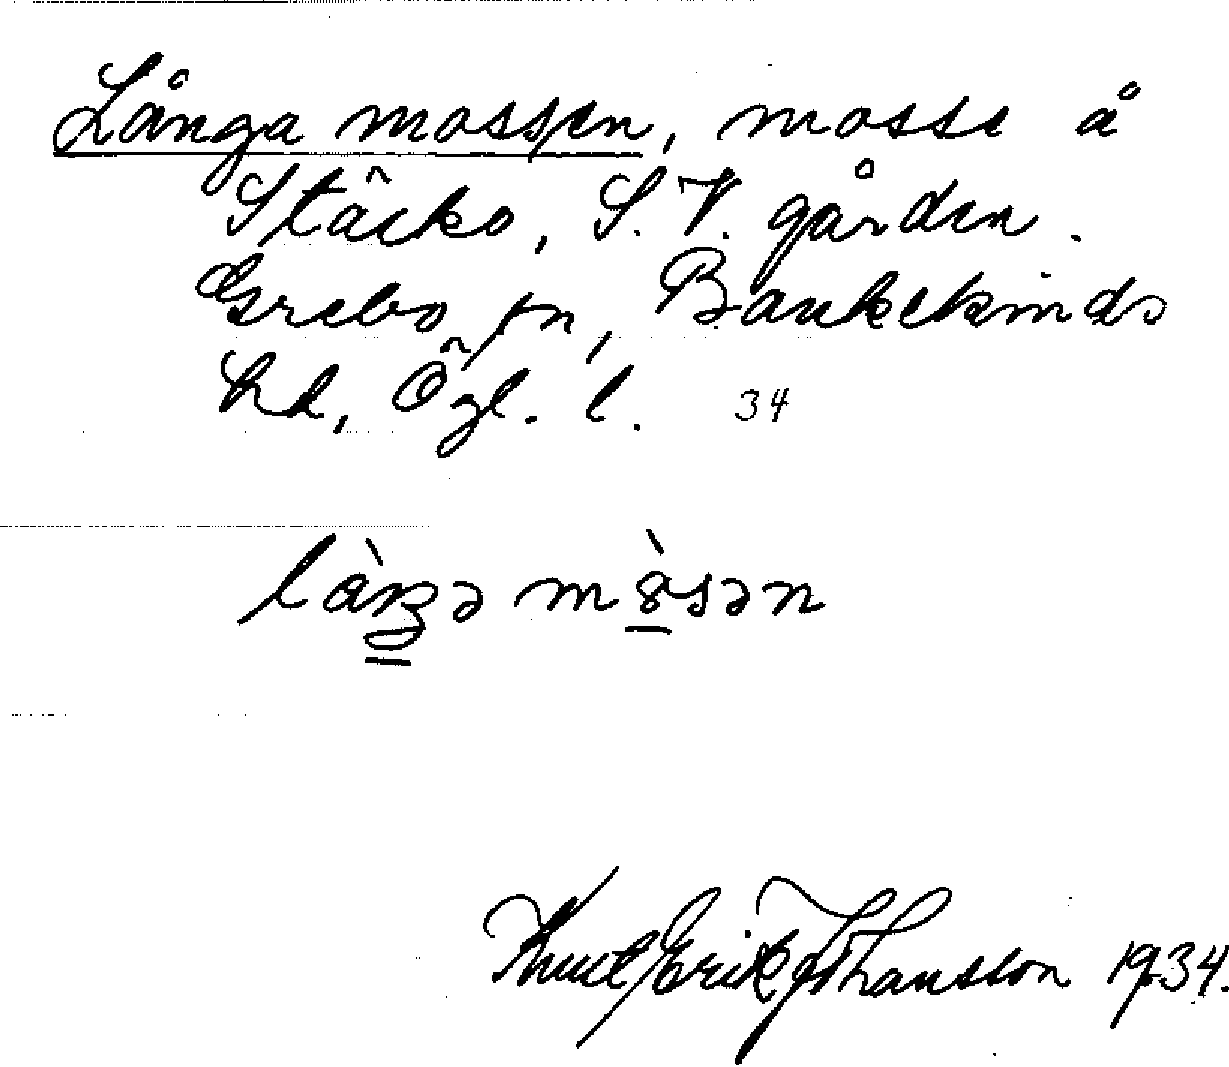 Långa mossen, mosse å
Stäcko, S. V. gården.
Grebo sn, Bankekinds
hd, Ögl. l. 34
mòsən
Knut Erik Johansson 1934.